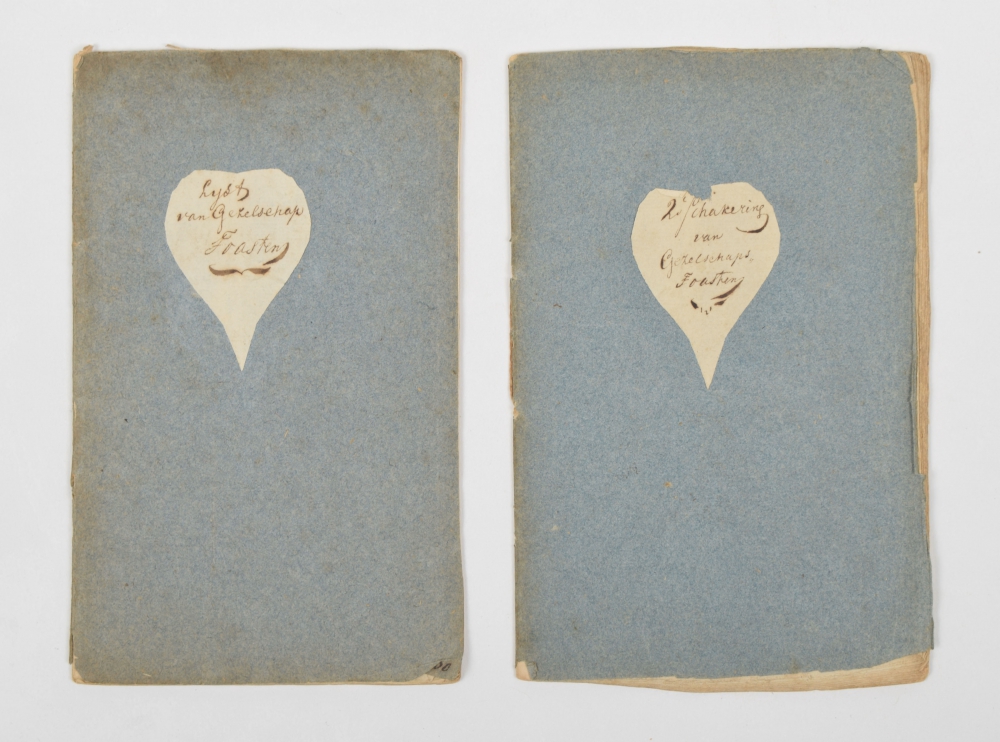 Lyst
van Gezelschap
Toasten
20
2e Schakering
van
Gezelschaps-
Toasten